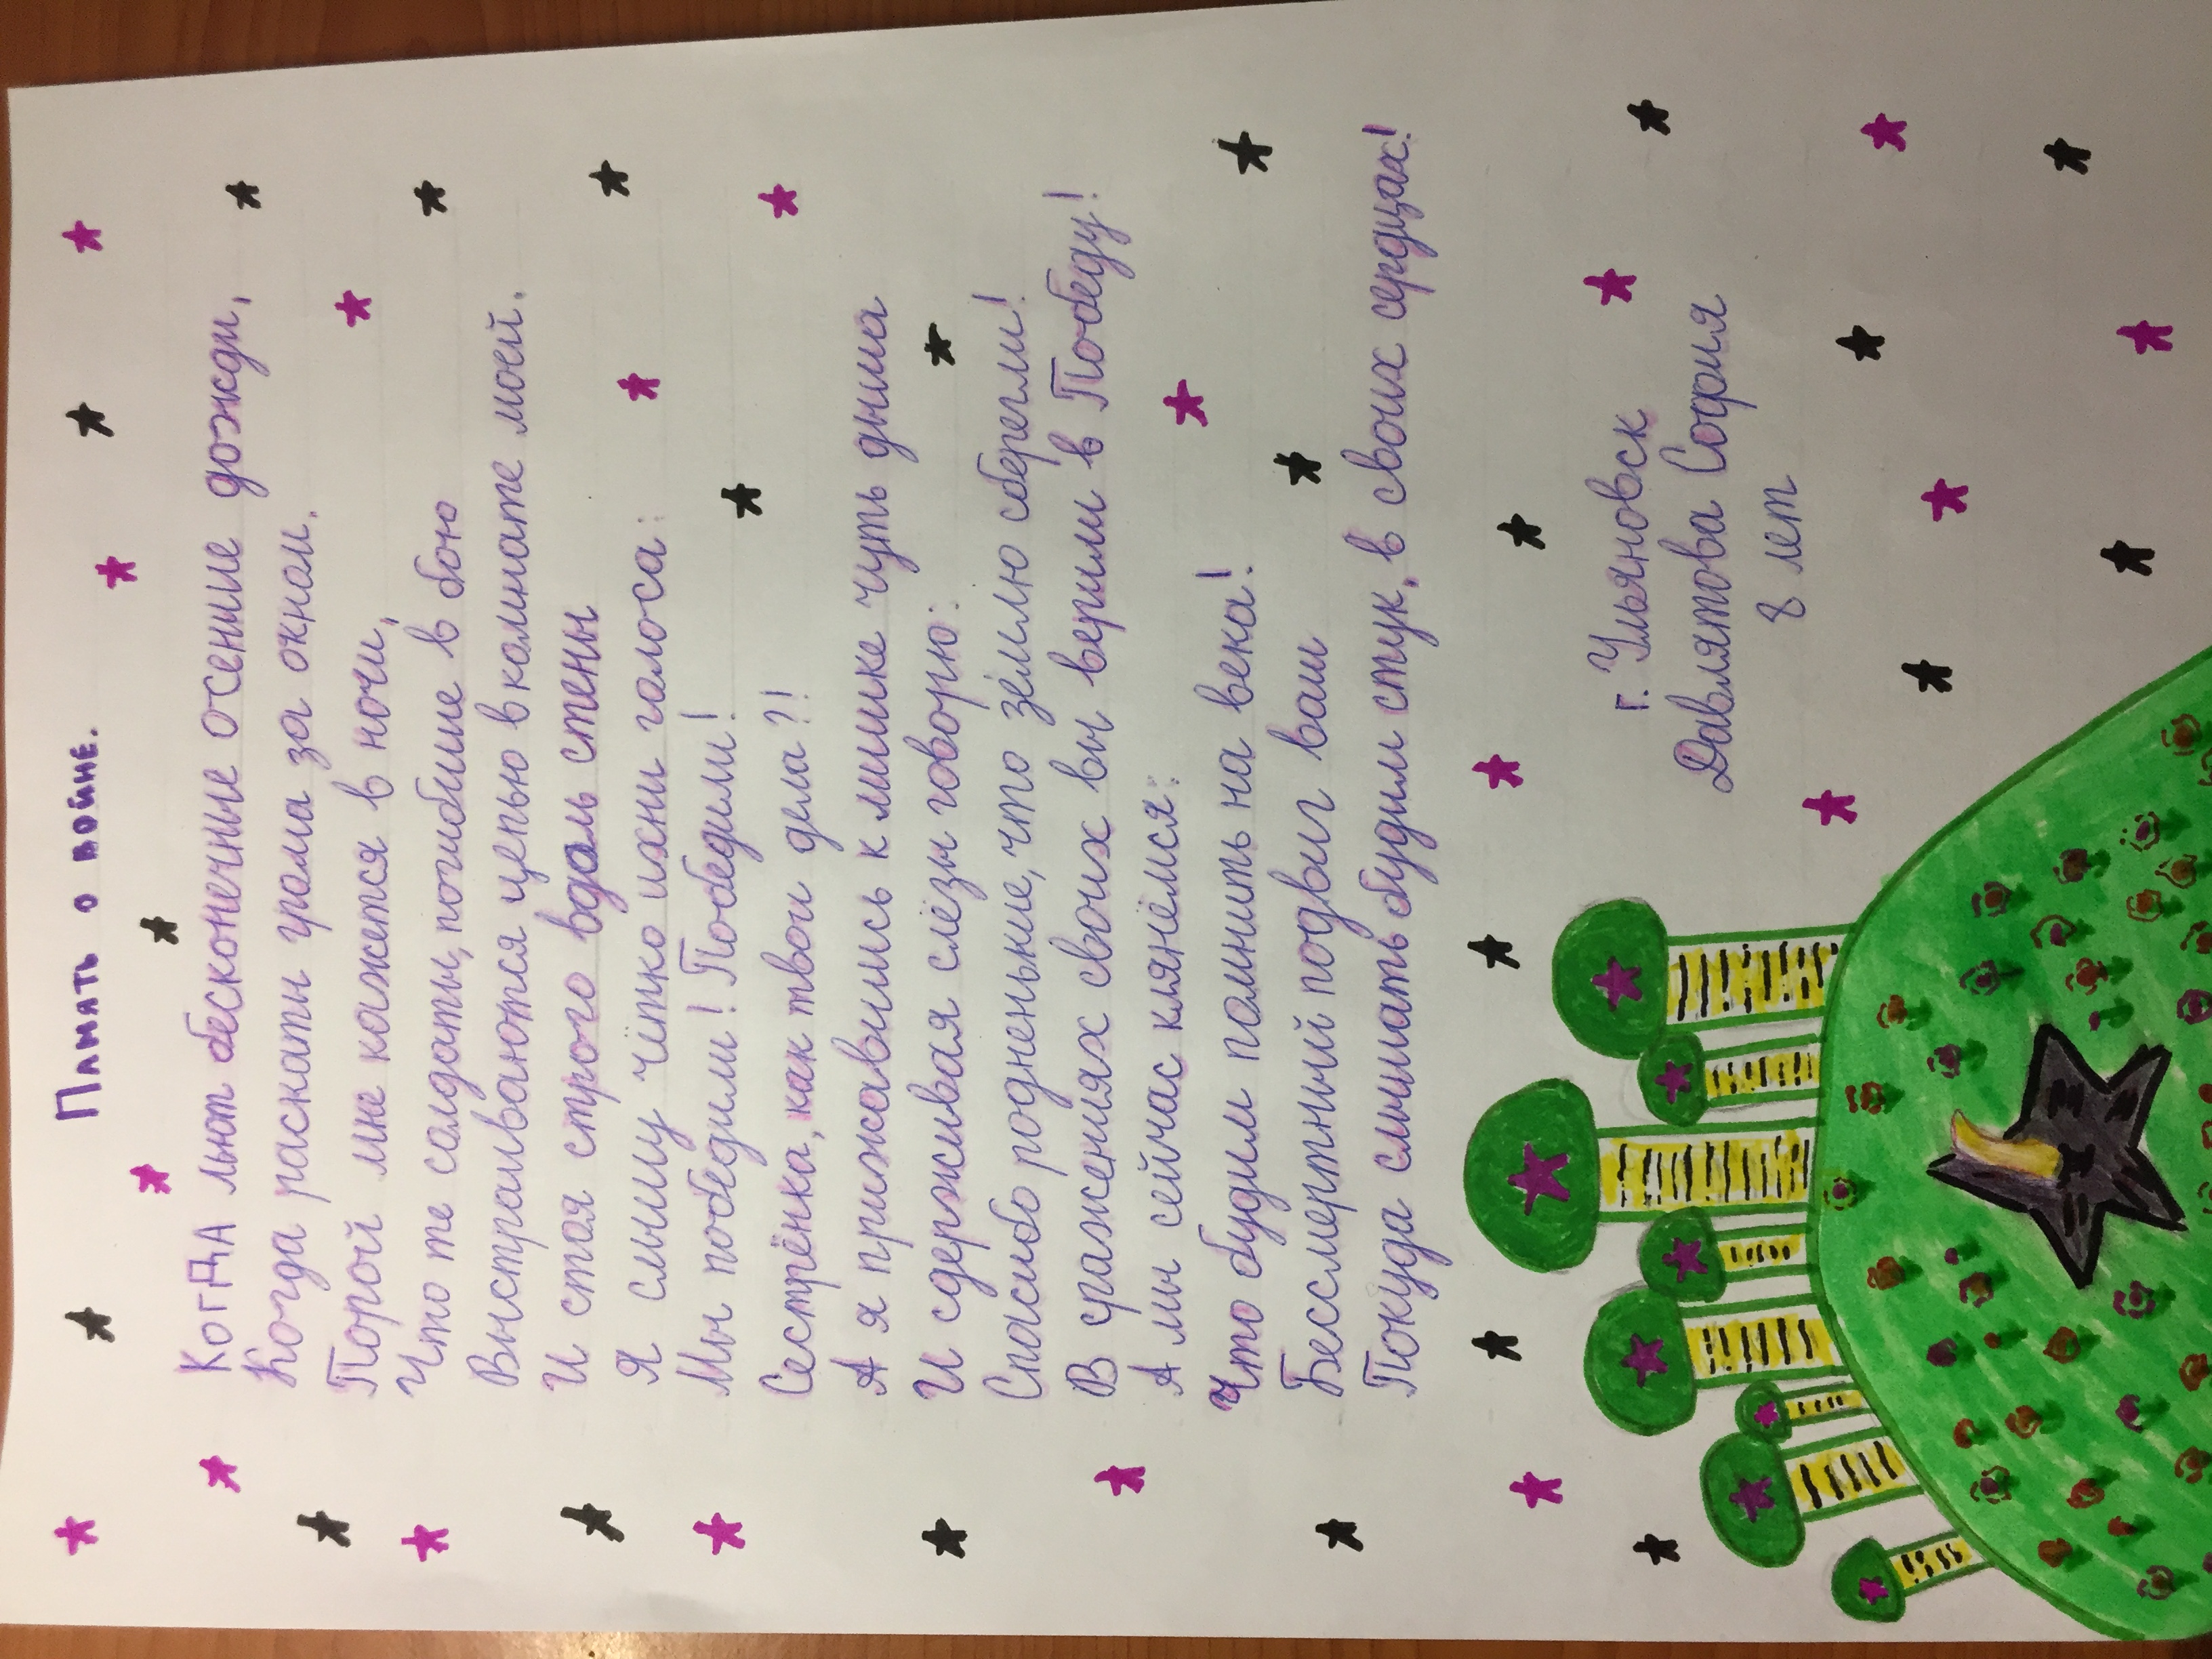 Память о войне.
Когда льют бесконечные осение дожди,
Когда раскаты грома за окном.
Порой мне кажется в ночи,
Что те солдаты, погибшие в бою
Выстраиваются цепью в комнате моей.
И стоя строго вдоль стены
Я слышу чётко ихни голоса:
Мы победили! Победили!
Сестрёнка, как твои дела?!
А я прижавшись к мишке чуть дыша
И сдерживая слёзы говорю:
Спасибо родненькие, что землю сберегли!
В сражениях своих вы верили в Победу!
А мы сейчас клянёмся:
Что будим помнить на века!
Бессмертный подвиг ваш
Покуда слышать будим стук, в своих сердцах!
г. Ульяновск
Давлятова София
8 лет